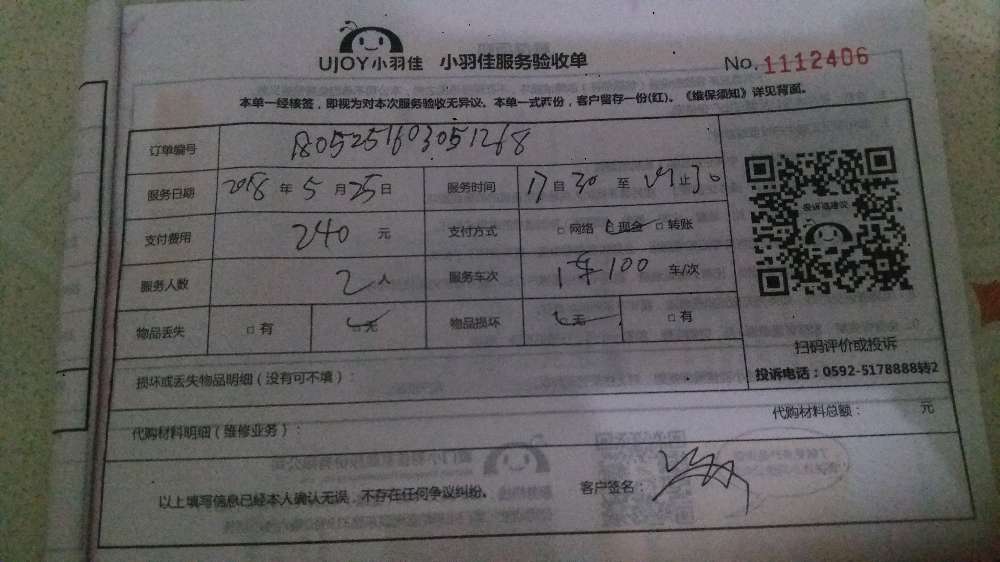 UJOY小羽佳 小羽佳服务验收单 No.1112406
本单一经核签，即视为对本次服务验收无异议。本单一式两份，客户留存一份(红)。《维保须知》详见背面。
订单编号 1805251603051268
服务日期 2018 年 5 月 25 日 服务时间 17 自 30 至 止 30
支付费用 240 元 支付方式 □ 网络 □ 现金 □ 转账
服务人数 2 人 服务车次 1车100 车/次
物品丢失 □ 有 □ 无 物品损坏 □ 无 □ 有
投诉或建议
扫码评价或投诉
投诉电话：0592-5178888转2
损坏或丢失物品明细（没有可不填）：
代购材料明细（维修业务）： 代购材料总额： 元
以上填写信息已经本人确认无误，不存在任何争议纠纷。 客户签名：